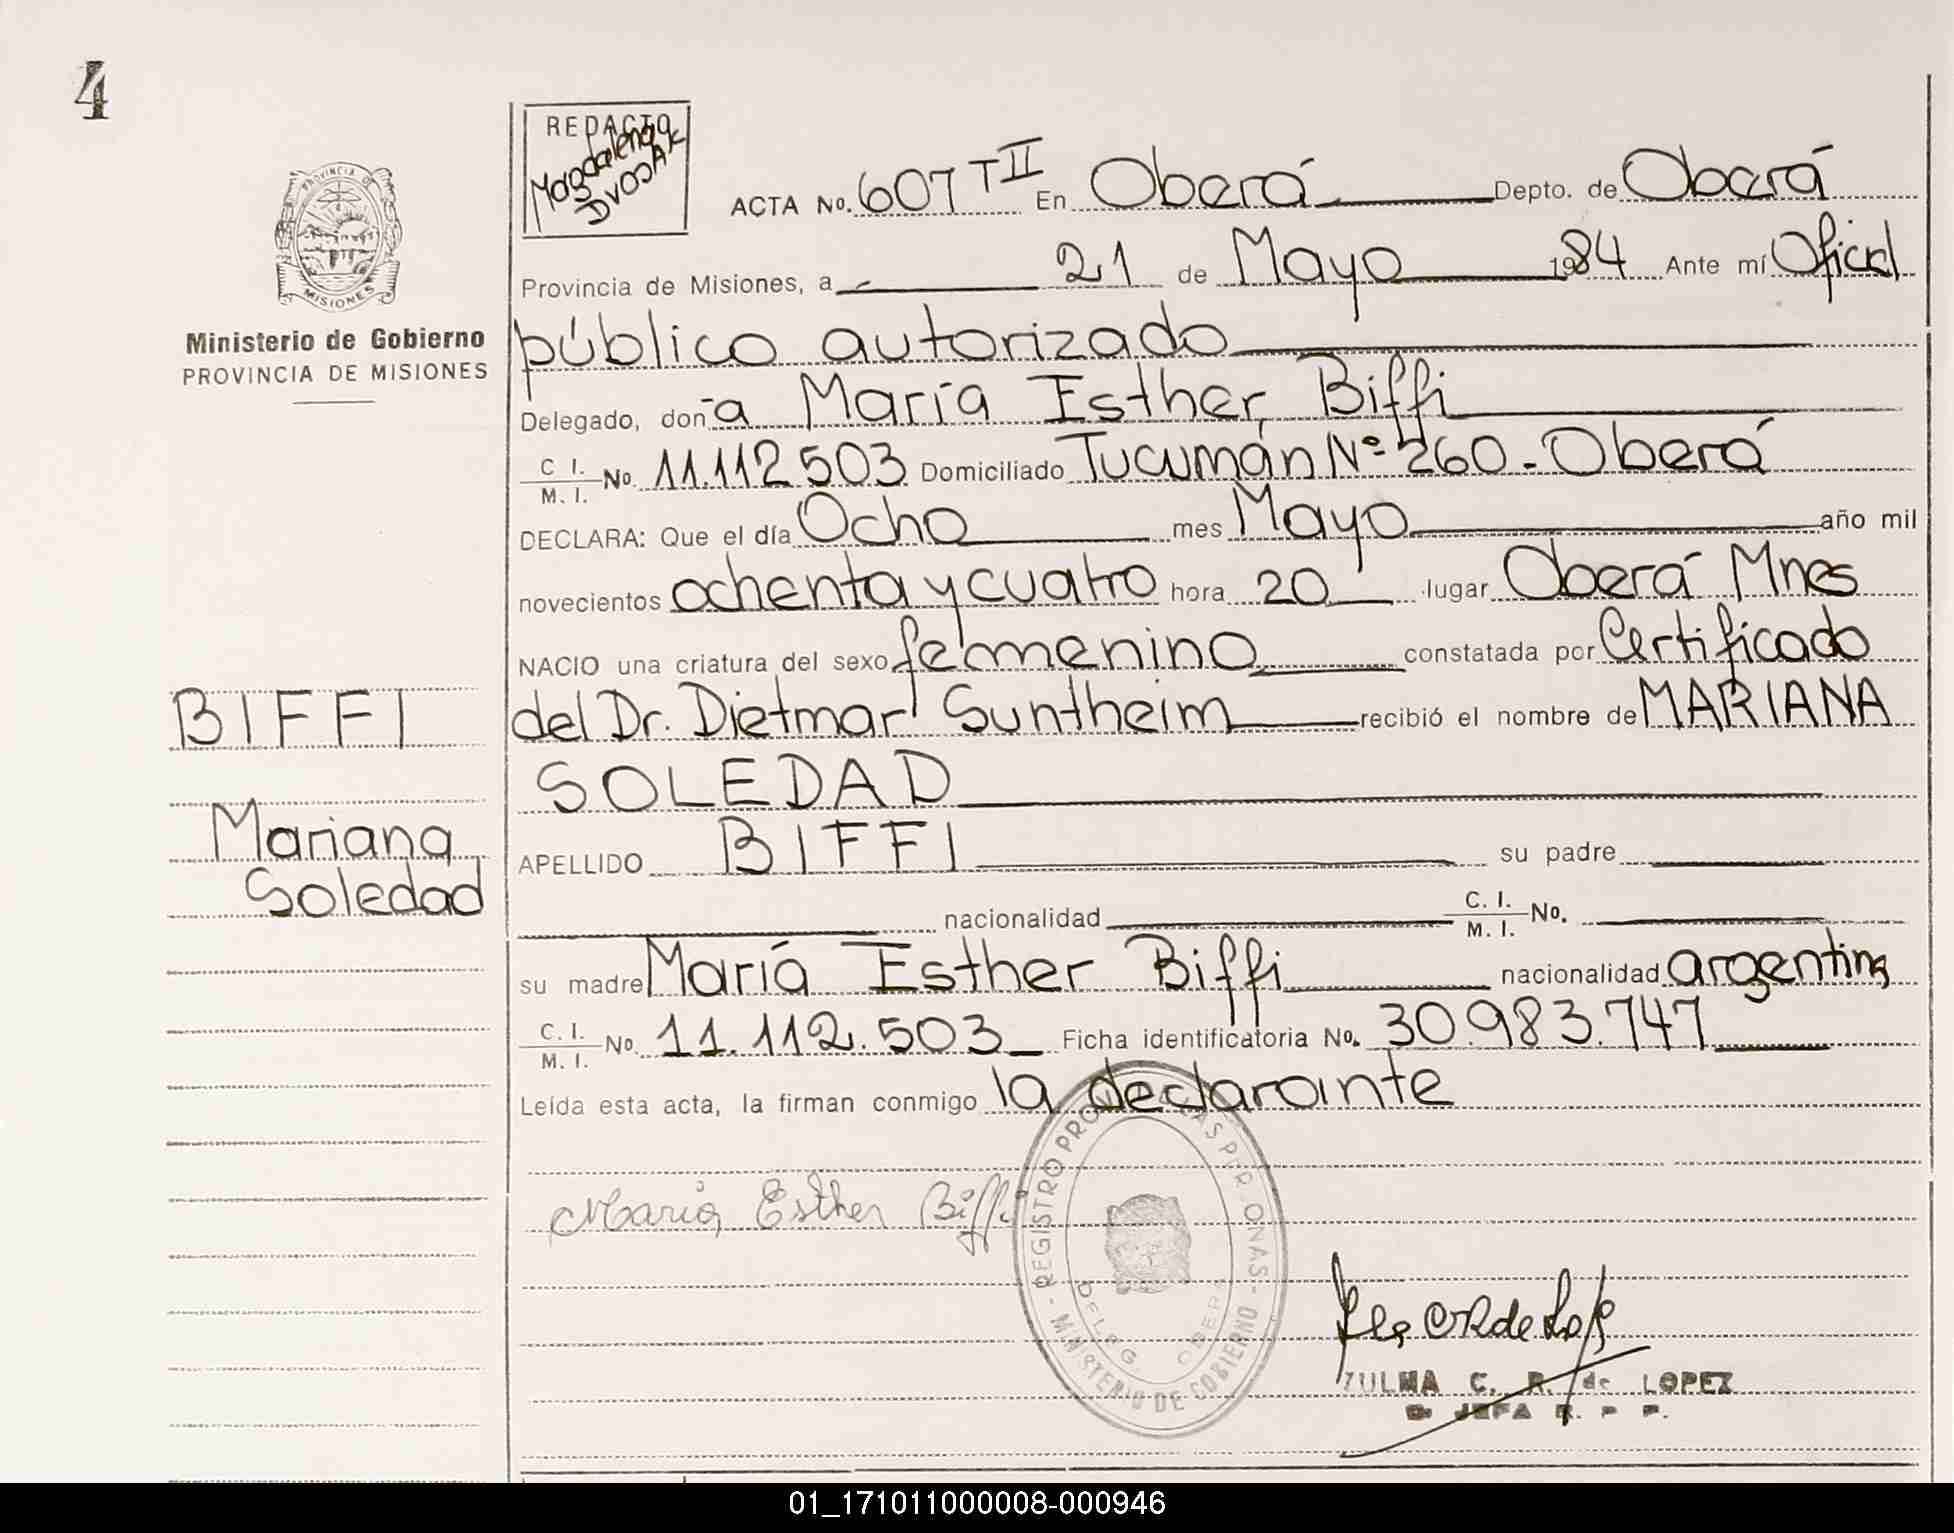 4
REDACTO
Magdalena
DVOSAK
PROVINCIA DE
MISIONES
Ministerio de Gobierno
PROVINCIA DE MISIONES
ACTA No. 607 T II En Oberá Depto. de Oberá
Provincia de Misiones, a 21 de Mayo 1984 Ante mí Oficial
público autorizado
Delegado, don a María Esther Biffi
C. I. / M. I. No. 11.112.503 Domiciliado Tucumán Nº 260 - Oberá
DECLARA: Que el día Ocho mes Mayo año mil
novecientos ochenta y cuatro hora 20 lugar Oberá Mnes
NACIO una criatura del sexo femenino constatada por Certificado
del Dr. Dietmar Suntheim recibió el nombre de MARIANA
SOLEDAD
APELLIDO BIFFI su padre
nacionalidad C. I. / M. I. No.
su madre María Esther Biffi nacionalidad argentina
C. I. / M. I. No. 11.112.503 Ficha identificatoria No. 30.983.747
Leída esta acta, la firman conmigo la declarante
BIFFI
Mariana
Soledad
María Esther Biffi
REGISTRO PROV DE LAS PERSONAS - MINISTERIO DE GOBIERNO -
DELEG. OBERA
ZULMA C. R. de LOPEZ
JEFA R. P. P.
01_171011000008-000946